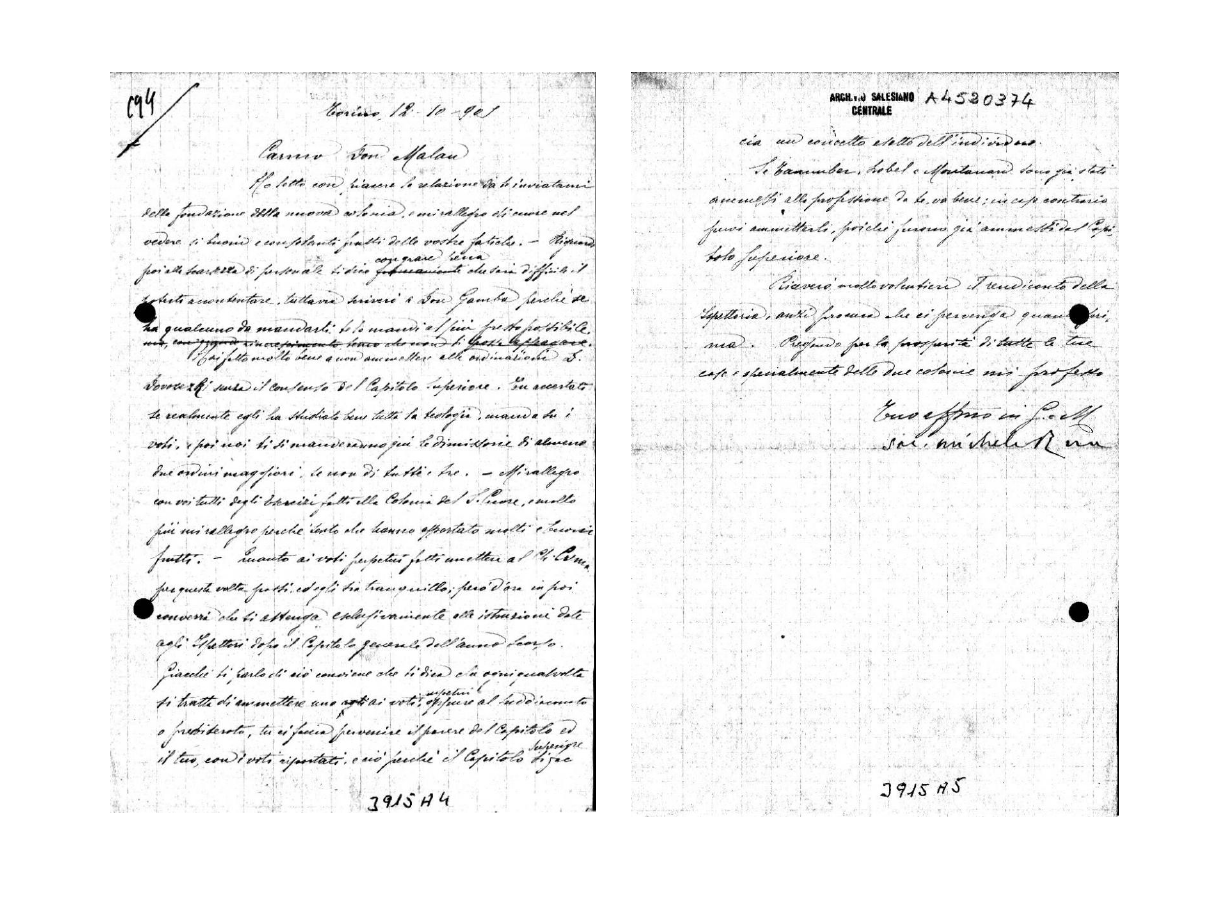 C94
Torino, 12-10-901
Carmo Don Malan
Ho letto con piacere la relazione da te inviatami
della fondazione della nuova colonia, e mi rallegro di cuore nel
vedere sì buoni e consolanti frutti delle vostre fatiche. - Riguardo
con grave pena
poi alla scarsezza di personale ti dico che sarà difficile il
poterti accontentare, tuttavia scriverò a Don Gamba perchè se
ha qualcuno da mandarti, te lo mandi al più presto possibile
Hai fatto molto bene a non ammettere alle ordinazioni D.
senza il consenso del Capitolo Superiore. Tu accertato
se realmente egli ha studiato bene tutta la teologia, manda su i
voti, e poi noi ti si manderanno qui le dimissorie di almeno
due ordini maggiori, se non di tutti e tre. - Mi rallegro
con voi tutti degli Esercizi fatti alla Colonia del S. Cuore, e molto
più mi rallegro perchè sento che hanno apportato molti e buoni
frutti. - Quanto ai voti perpetui fatti emettere al Ch.
per questa volta passi, ed egli sia tranquillo; però d'ora in poi
converrà che ti attenga esclusivamente alle istruzioni date
agli Ispettori dopo il Capitolo generale dell'anno scorso.
Giacchè ti parlo di ciò conviene che ti dica che ogniqualvolta
perpetui
si tratta di ammettere uno ai voti, oppure al suddiaconato
o presbiterato, tu ci faccia pervenire il parere del Capitolo ed
Superiore
il tuo, con i voti riportati, e ciò perchè il Capitolo si fac
3915 A4
ARCHIVIO SALESIANO
CENTRALE
A4520374
cia un concetto esatto dell'individuo.
Se Tannuber, Lobel e Montanari sono già stati
ammessi alla professione da te, va bene; in caso contrario
puoi ammetterli, poichè furono già ammessi dal Capi
tolo Superiore.
Riceverò molto volentieri il rendiconto della
Ispettoria, anzi procura che ci pervenga quanto pri,
ma. Pregando per la prosperità di tutte le tue
case e specialmente delle due colonie mi professo
Tuo affmo in G. e M.
Sac. Michele Rua
3915 A5